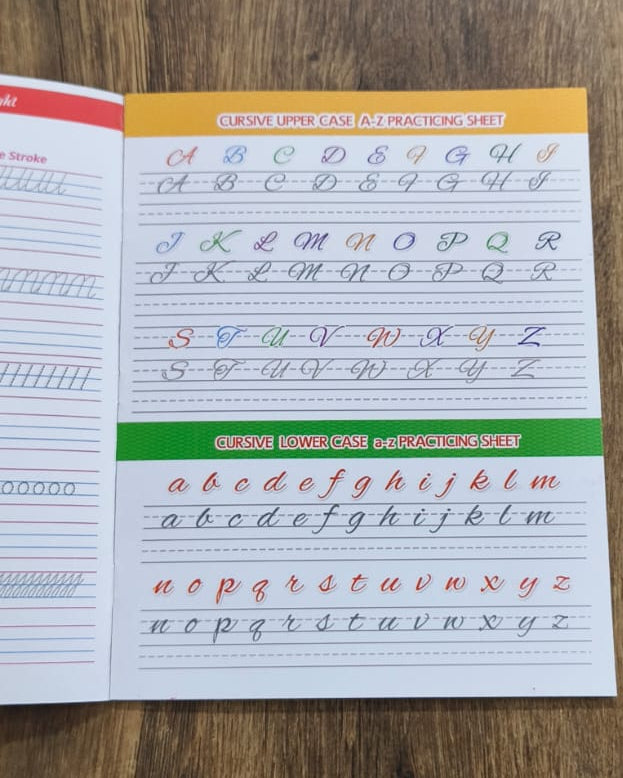 e Stroke
CURSIVE UPPER CASE A-Z PRACTICING SHEET
A B C D E F G H I
A B C D E F G H I
J K L M N O P Q R
J K L M N O P Q R
S T U V W X Y Z
S T U V W X Y Z
CURSIVE LOWER CASE a-z PRACTICING SHEET
a b c d e f g h i j k l m
a b c d e f g h i j k l m
n o p q r s t u v w x y z
n o p q r s t u v w x y z
ooooo